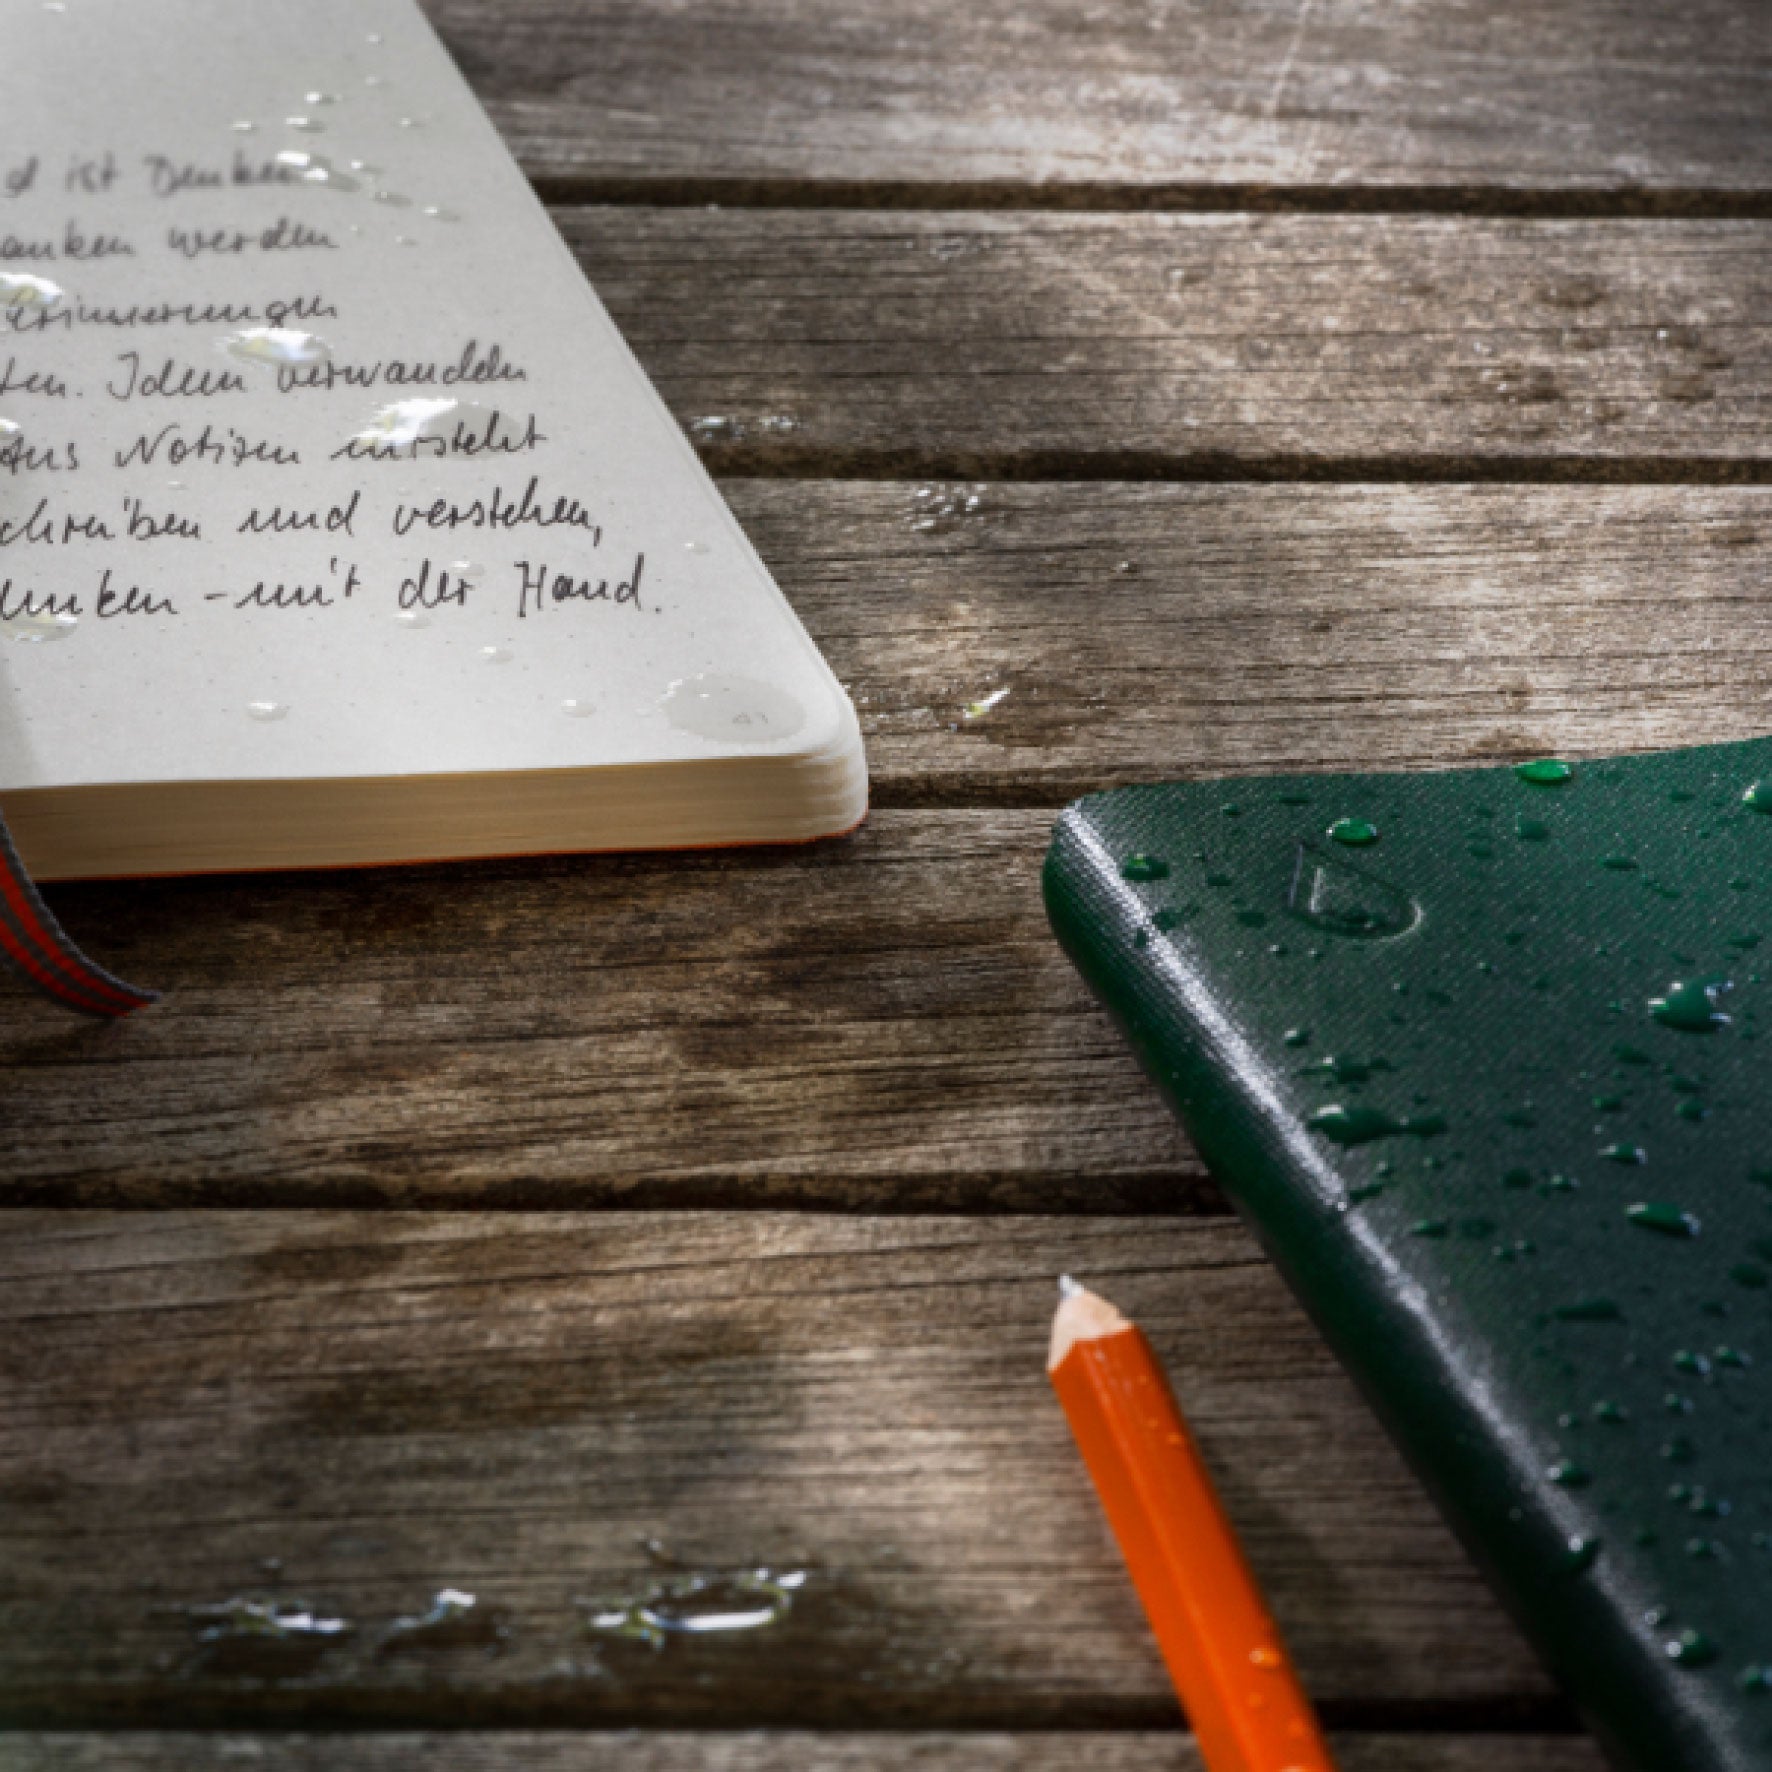 d ist Denken
anken werden
Erinnerungen
ten. Ideen verwandeln
Aus Notizen entsteht
chreiben und verstehen,
denken - mit der Hand.